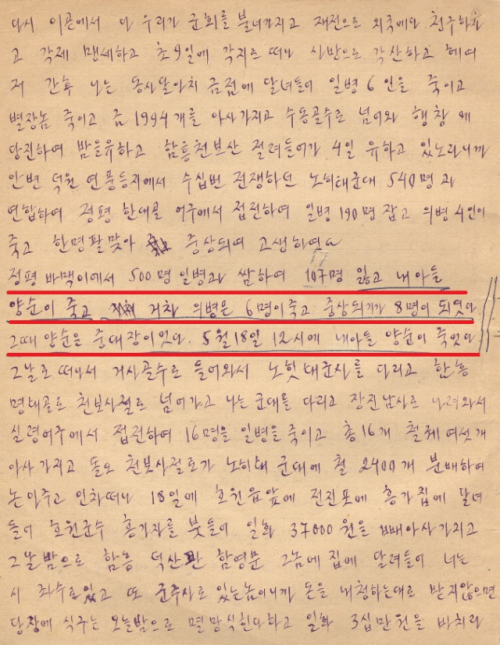 다시 이곤에서 다 우리가 군회를 불너가지고 재전으로 외국에와 천구하
고 각제 맨세하고 초9일에 각지로 떠나 신반으로 각산하고 헤여
저 간후 나는 동사달아치 금점에 달녀들이 일병 6인을 죽이고
별장놈 죽이고 금 1994개를 아사가지고 수동골수로 넘어와 행창 때
당진하여 밤을유하고 함흥천보산 절러들어가 4일 유하고 있노라니까
안변 덕원 연문등지에서 수십번 전쟁하던 노히태군대 540명과
연합하여 정평 한대골 어구에서 접전하여 일병 190명 잡고 의병 4인이
죽고 한명팔맞아 중상되여 고생하엿다
정평 바맥이에서 500명 일병과 쌈하여 107명 잃고 내아들
양순이 죽고 거차 의병은 6명이죽고 중상되기가 8명이 되엿다
그때 양순은 중대장이엿다. 5월18일 12시에 내아들 양순이 죽엇다
그날로 떠나서 거사골수로 들어와서 노힛태군사를 다리고 한흥
명태골로 천보사절로 넘어가고 나는 군대를 다리고 장진남사로 나려와서
실령어구에서 접전하여 16명을 일병을 죽이고 총16개 철궤 여섯개
아사가지고 돌오 천봇사절로가 노히태 군대에 철 2400개 분배하여
논아주고 인차떠나 18일에 호원읍앞에 전진포에 홍가집에 달녀
들어 호원군수 홍가자를 붓들이 일화 37000원을 빼아사가지고
그날밤으로 함흥 덕산관 함영문 그놈에집에 달려들이 너는
시 좌수로있고 또 군주사로 있는놈이니까 돈을 내청하는대로 받지않으면
당장에 식구는 오늘밤으로 멸망식힌다하고 일화 3십만원을 바치라